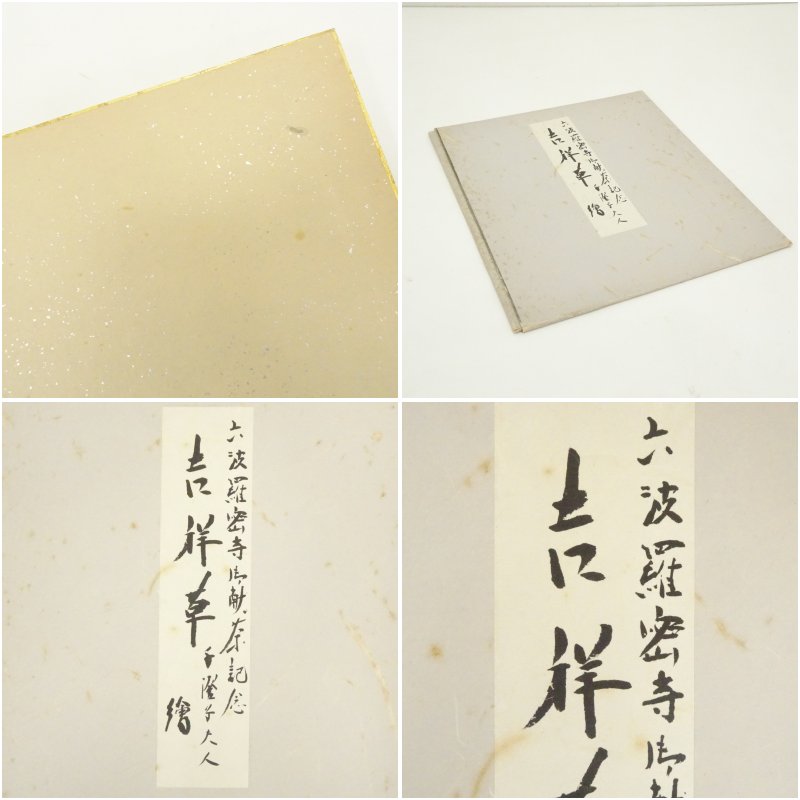 六波羅密寺御献茶記念
吉祥草
千澄子大人
繪
六波羅密寺御献茶記念
吉祥草
千澄子大人
繪
六波羅密寺御
吉祥